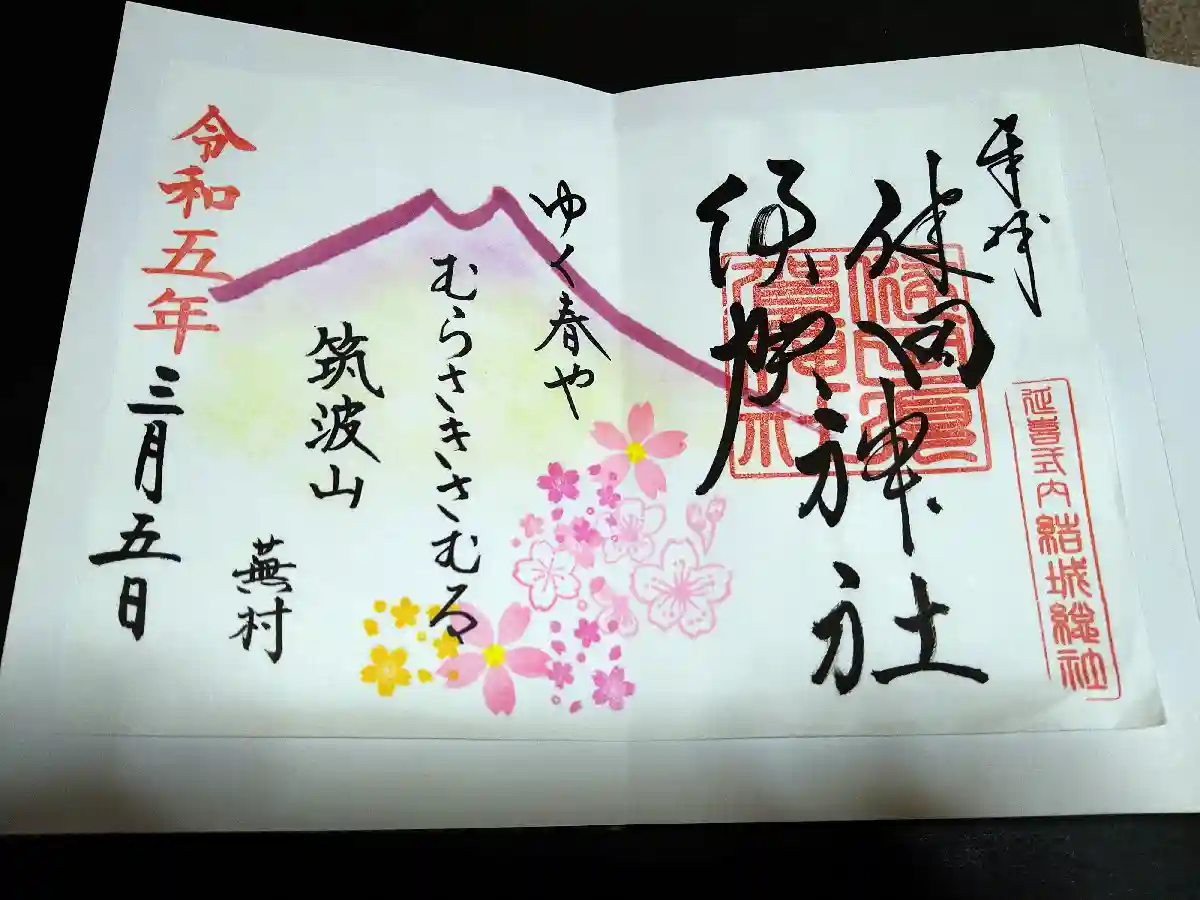 奉拝
延喜式内結城総社
健田
須賀
神社
健田須
賀神社
ゆく春や
むらさきさむる
筑波山
蕪村
令和五年
三月五日